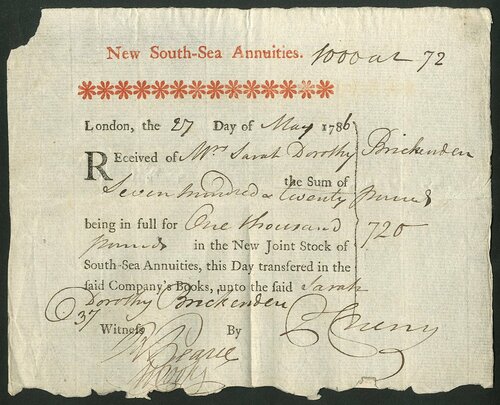 New South-Sea Annuities. 1000 at 72
London, the 27 Day of May 1786
Received of Mrs Sarah Dorothy Brickenden
the Sum of
Seven hundred & twenty pounds
being in full for One thousand 720
pounds in the New Joint Stock of
South-Sea Annuities, this Day transfered in the
said Company's Books, unto the said Sarah
Dorothy Brickenden
37
Witness By
Pearce